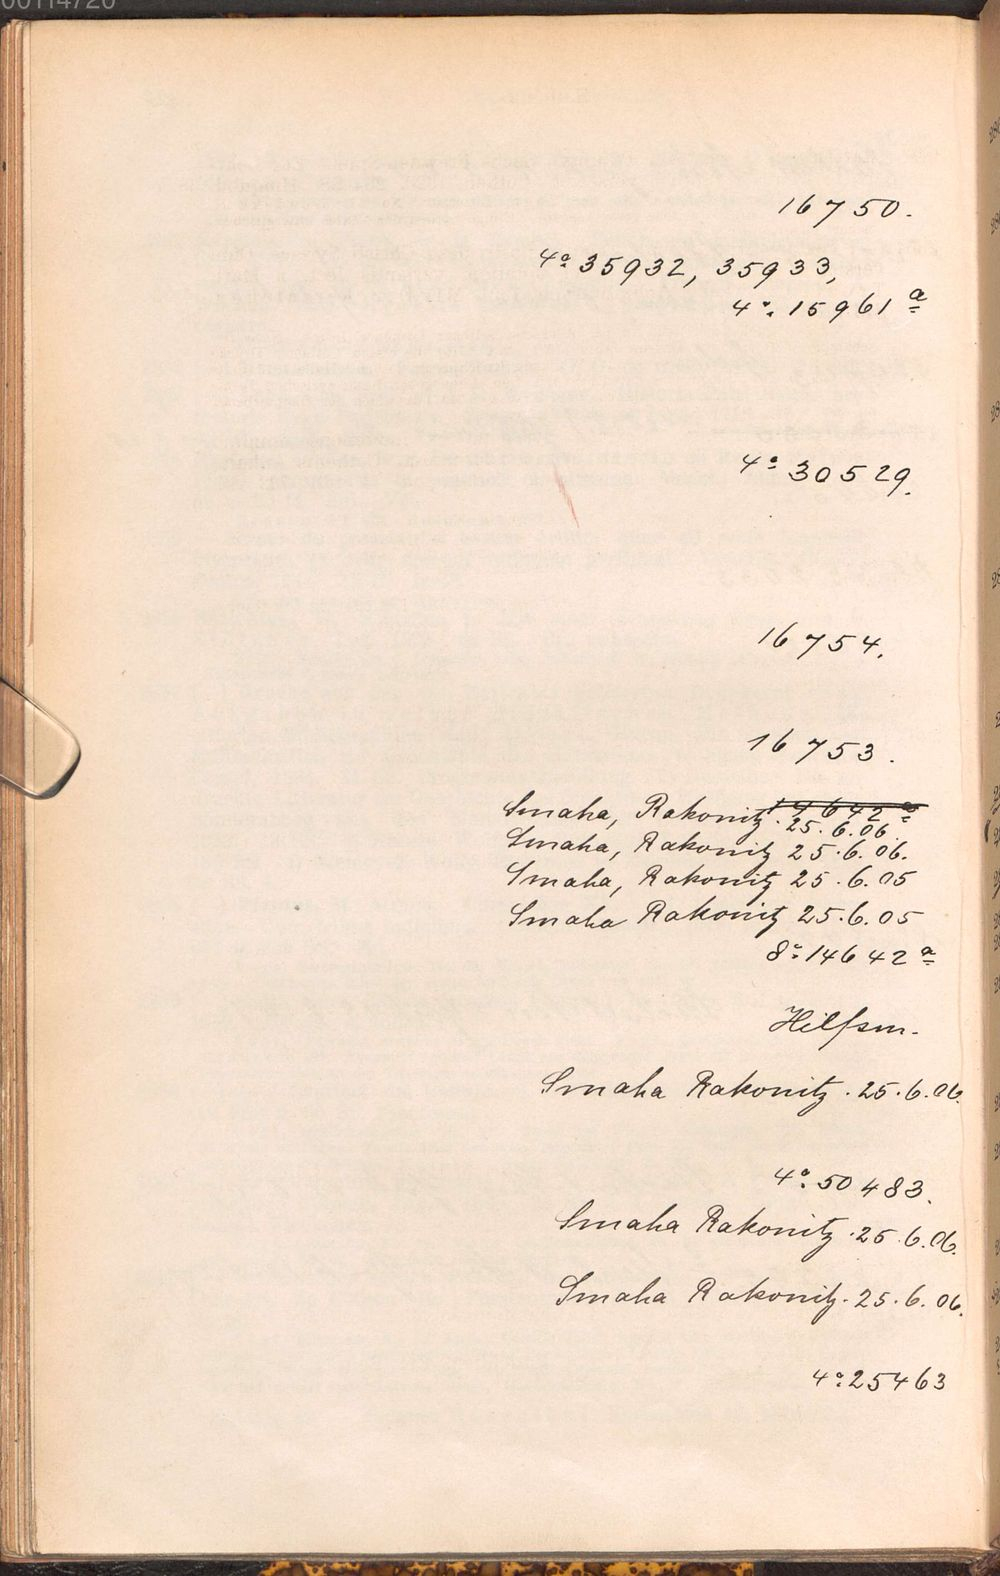 00114720
16750.
4° 35932, 35933,
4°. 15961 a
4° 30529.
16754.
16753.
Smaha, Rakonitz 14642 a
25.6.06.
Smaha, Rakonitz 25.6.06.
Smaha, Rakonitz 25.6.05
Smaha Rakonitz 25.6.05
8° 14642 a
Hilfsm.
Smaha Rakonitz. 25.6.06.
4° 50483.
Smaha Rakonitz. 25.6.06.
Smaha Rakonitz. 25.6.06.
4° 25463